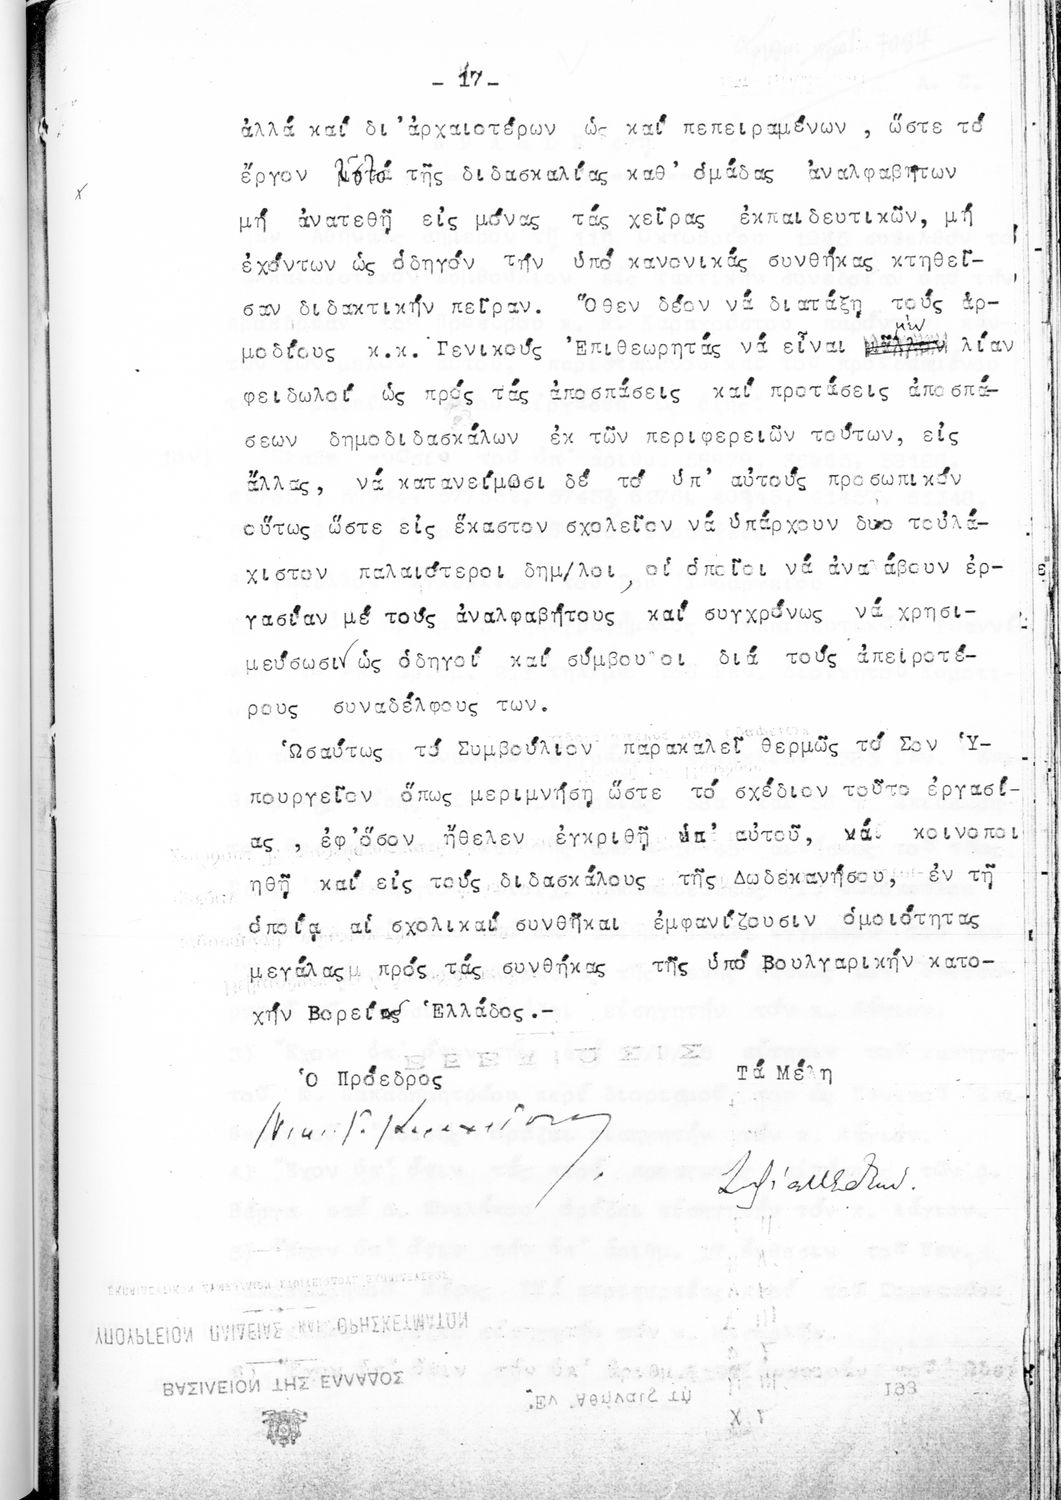 - 17 -
ἀλλά καί δι'ἀρχαιοτέρων ὡς καί πεπειραμένων , ὥστε τό
ἔργον τῆς διδασκαλίας καθ' ὁμάδας ἀναλφαβήτων
μή ἀνατεθῇ εἰς μόνας τάς χεῖρας ἐκπαιδευτικῶν, μή
ἐχόντων ὡς ὁδηγόν τήν ὑπό κανονικάς συνθήκας κτηθεῖ-
σαν διδακτικήν πεῖραν. Ὅθεν δέον νά διατάξῃ τούς ἁρ-
μοδίους κ.κ. Γενικούς Ἐπιθεωρητάς νά εἶναι λίαν
φειδωλοί ὡς πρός τάς ἀποσπάσεις καί προτάσεις ἀποσπά-
σεων δημοδιδασκάλων ἐκ τῶν περιφερειῶν τούτων, εἰς
ἄλλας, νά κατανείμωσι δέ τό ὑπ' αὐτούς προσωπικόν
οὕτως ὥστε εἰς ἕκαστον σχολεῖον νά ὑπάρχουν δυο τοὐλά-
χιστον παλαιότεροι δημ/λοι, οἱ ὁποῖοι νά ἀναλάβουν ἐρ-
γασίαν μέ τούς ἀναλφαβήτους καί συγχρόνως νά χρησι-
μεύσωσι ὡς ὁδηγοί καί σύμβουλοι διά τούς ἀπειροτέ-
ρους συναδέλφους των.
Ὡσαύτως τό Συμβούλιον παρακαλεῖ θερμῶς τό Σον Ὑ-
πουργεῖον ὅπως μεριμνήσῃ ὥστε τό σχέδιον τοῦτο ἐργασί-
ας , ἐφ'ὅσον ἤθελεν ἐγκριθῇ ὑπ' αὐτοῦ, καί κοινοποι
ηθῇ καί εἰς τούς διδασκάλους τῆς Δωδεκανήσου, ἐν τῇ
ὁποίᾳ αἱ σχολικαί συνθῆκαι ἐμφανίζουσιν ὁμοιότητας
μεγάλας πρός τάς συνθήκας τῆς ὑπό Βουλγαρικήν κατο-
χήν Βορείας Ἑλλάδος.-
Ὁ Πρόεδρος Τά Μέλη
ΥΠΟΥΡΓΕΙΟΝ ΠΑΙΔΕΙΑΣ ΚΑΙ ΘΡΗΣΚΕΥΜΑΤΩΝ
ΒΑΣΙΛΕΙΟΝ ΤΗΣ ΕΛΛΑΔΟΣ
Ἐν Ἀθήναις τῇ 193